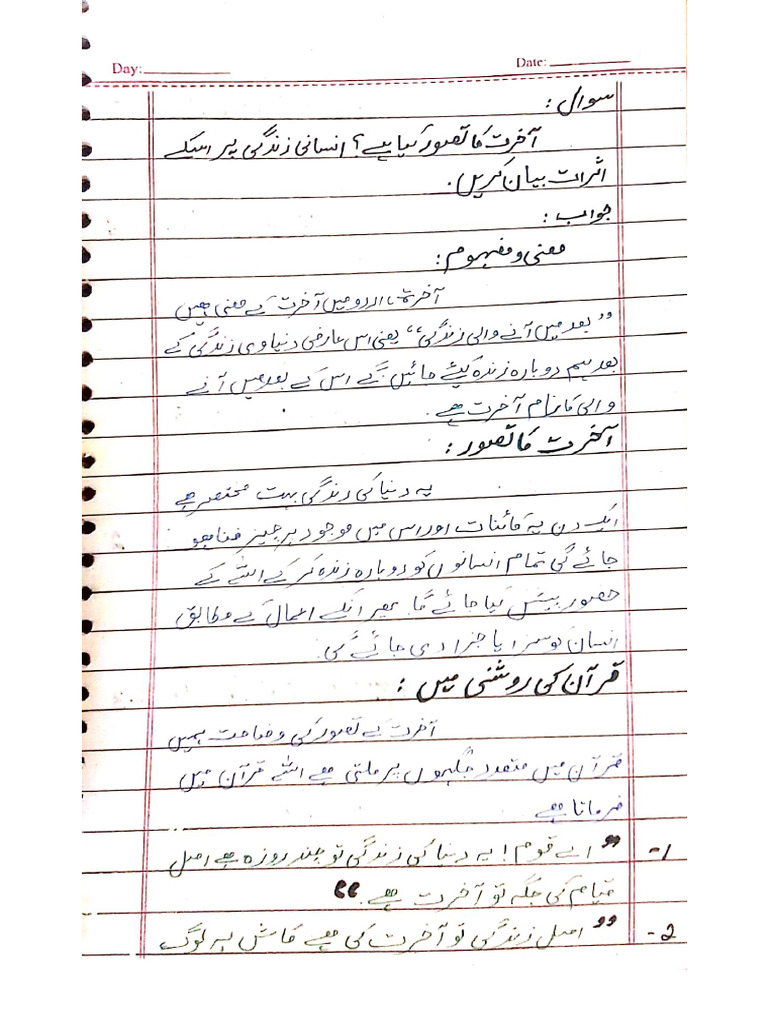 Day:
Date:
سوال:
آخرت کا تصور کیا ہے؟ انسانی زندگی پر اسکے
اثرات بیان کریں.
جواب:
معنی و مفہوم:
آخرت، اردو میں آخرت کے معنی ہیں
"بعد میں آنے والی زندگی" یعنی اس عارضی دنیاوی زندگی کے
بعد ہم دوبارہ زندہ کیئے جائیں گے اس کے بعد میں آنے
والی کا نام آخرت ہے.
آخرت کا تصور:
یہ دنیا کی زندگی بہت مختصر ہے
ایک دن یہ کائنات اور اس میں موجود ہر چیز فنا ہو
جائے گی تمام انسانوں کو دوبارہ زندہ کر کے اللہ کے
حضور پیش کیا جائے گا. پھر انکے اعمال کے مطابق
انسان کو سزا یا جزا دی جائے گی.
قرآن کی روشنی میں:
آخرت کے تصور کی وضاحت ہمیں
قرآن میں متعدد جگہوں پر ملتی ہے اللہ قرآن میں
فرماتا ہے
1- "اے قوم! یہ دنیا کی زندگی تو چند روزہ ہے اصل
قیام کی جگہ تو آخرت ہے."
2- "اصل زندگی تو آخرت کی ہے کاش یہ لوگ